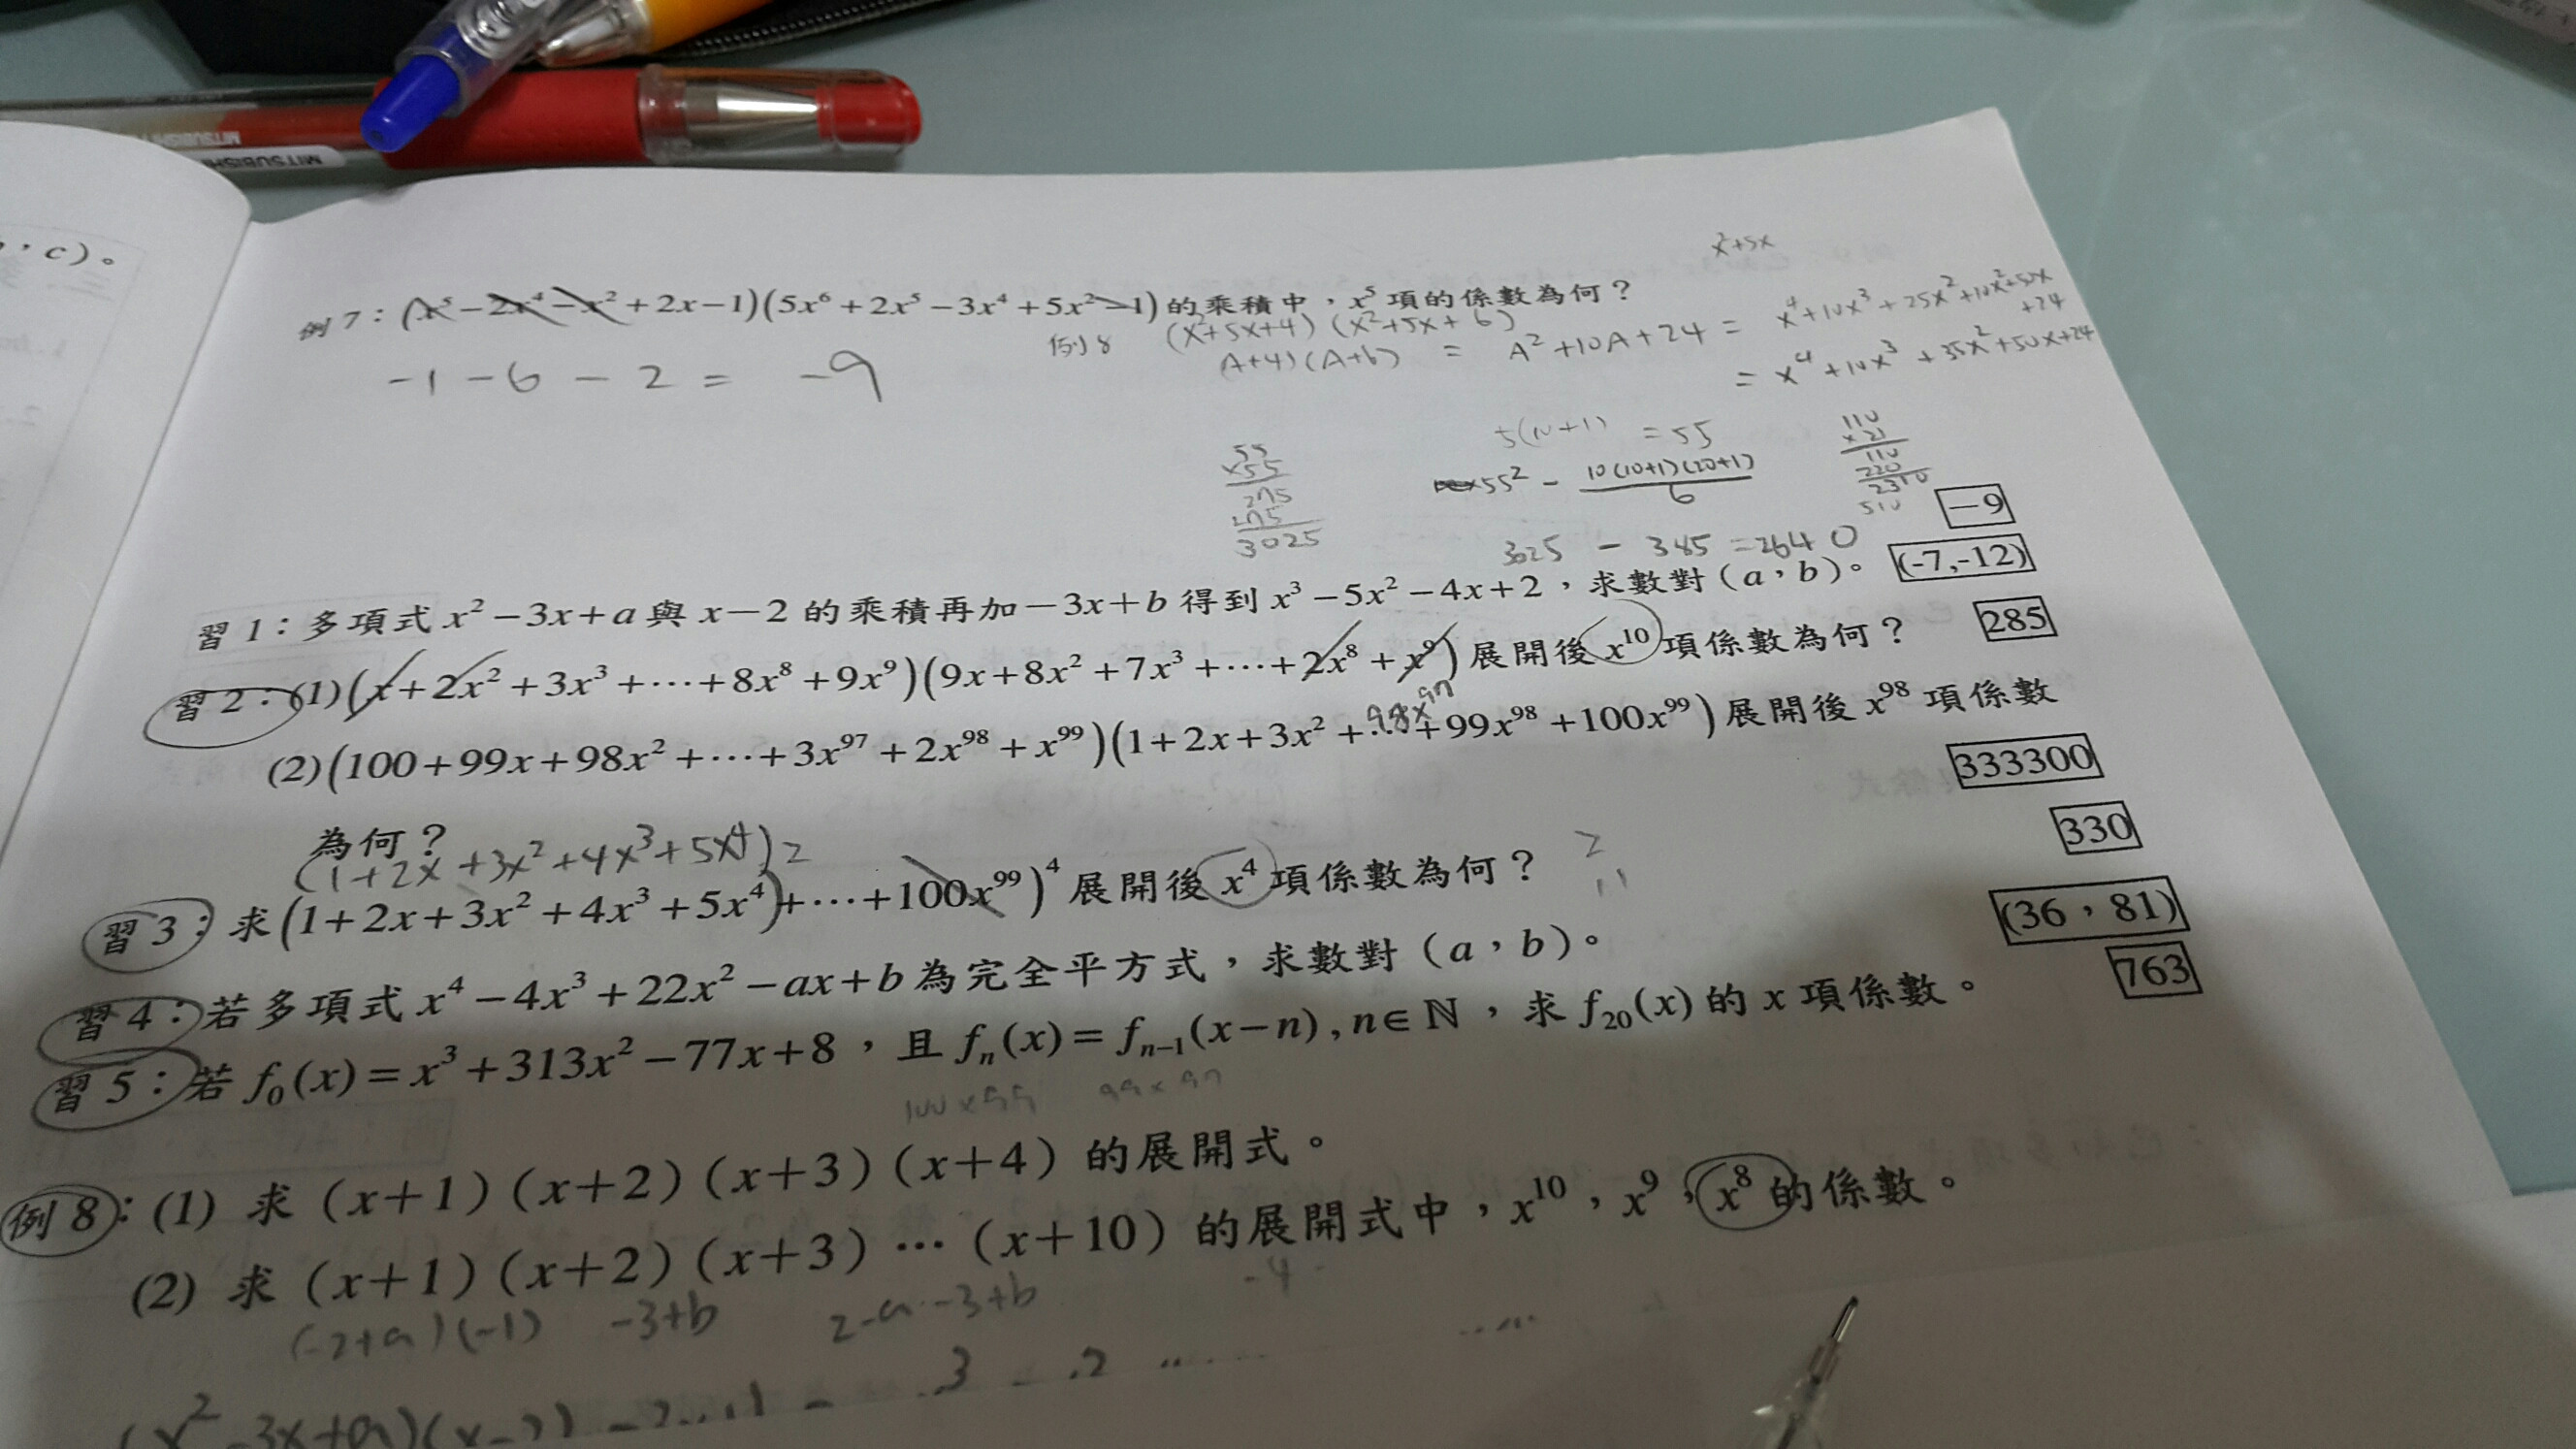 MITSUBISHI
MITSUBISHI
, c)。
x²+5x
例 7：(x⁵−2x⁴−x²+2x−1)(5x⁶+2x⁵−3x⁴+5x²−1) 的乘積中，x⁵ 項的係數為何？
−1−6−2 = −9
例8 (x²+5x+4)(x²+5x+6)
(A+4)(A+6) = A²+10A+24 = x⁴+10x³+25x²+10x²+50x
+24
= x⁴+10x³+35x²+50x+24
5(10+1) = 55
55² − 10(10+1)(20+1)
6
55
×55
275
275
3025
110
×21
110
220
2310
3025 − 385 = 2640
−9
習 1：多項式 x²−3x+a 與 x−2 的乘積再加−3x+b 得到 x³−5x²−4x+2，求數對（a，b）。 (-7,-12)
習 2：(1)(x+2x²+3x³+⋯+8x⁸+9x⁹)(9x+8x²+7x³+⋯+2x⁸+x⁹) 展開後 x¹⁰ 項係數為何？ 285
98x⁹⁷
(2)(100+99x+98x²+⋯+3x⁹⁷+2x⁹⁸+x⁹⁹)(1+2x+3x²+⋯+99x⁹⁸+100x⁹⁹) 展開後 x⁹⁸ 項係數
為何？ 333300
(1+2x+3x²+4x³+5x⁴)2
習 3：求(1+2x+3x²+4x³+5x⁴+⋯+100x⁹⁹)⁴ 展開後 x⁴ 項係數為何？ 330
習 4：若多項式 x⁴−4x³+22x²−ax+b 為完全平方式，求數對（a，b）。 (36，81)
習 5：若 f₀(x)=x³+313x²−77x+8，且 fₙ(x)=fₙ₋₁(x−n), n∈ℕ，求 f₂₀(x) 的 x 項係數。 763
100×99 99×97
例 8：(1) 求（x+1）（x+2）（x+3）（x+4）的展開式。
(2) 求（x+1）（x+2）（x+3）⋯（x+10）的展開式中，x¹⁰，x⁹，x⁸ 的係數。
(−2+a)(−1) −3+b 2−a−3+b −4
(x²−3x+a)(x−2)